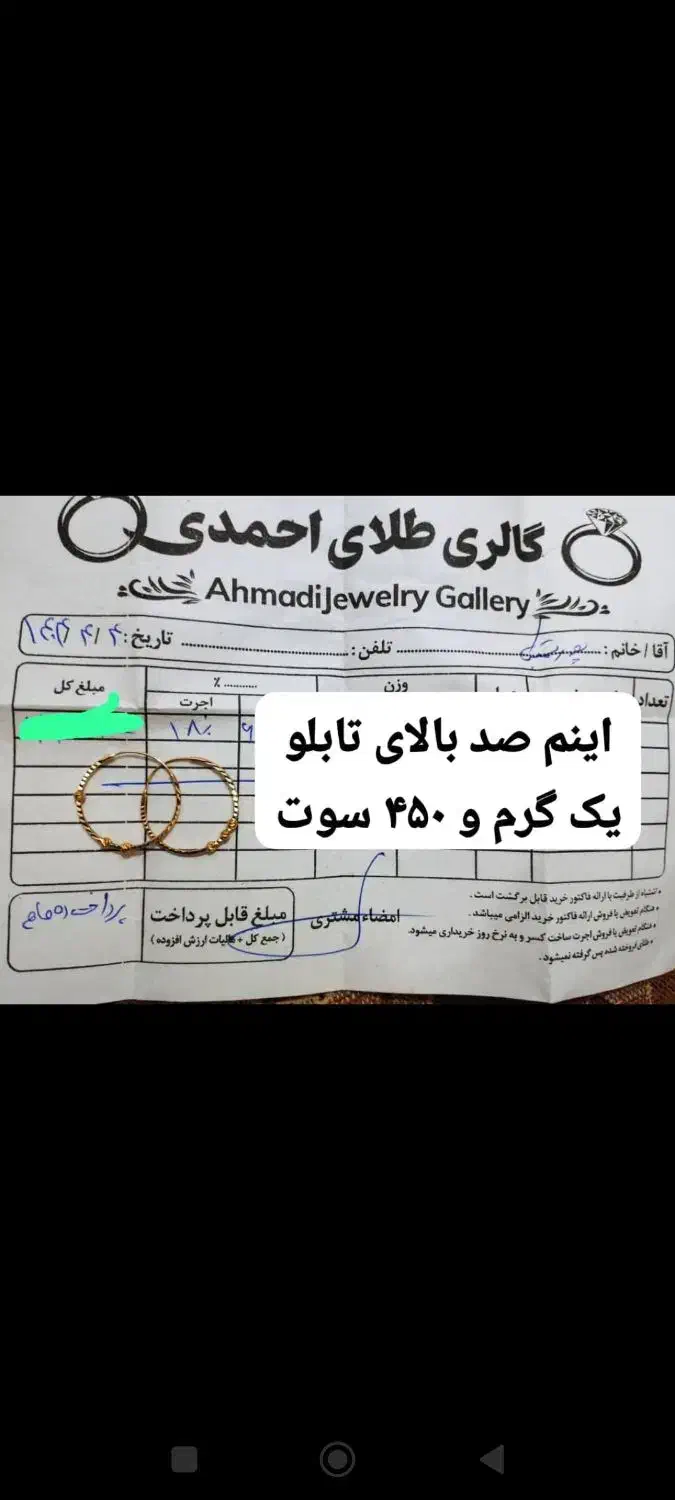 گالری طلای احمدی
Ahmadi Jewelry Gallery
آقا / خانم : تلفن : تاریخ : ۱۴۰۴/۴/۴
تعداد وزن ٪ مبلغ کل
اجرت
۱۸٪
اینم صد بالای تابلو
یک گرم و ۴۵۰ سوت
مبلغ قابل پرداخت
( جمع کل + مالیات ارزش افزوده )
پرداخت شد
امضاء مشتری
• اشتباه از طرفیت با ارائه فاکتور خرید قابل برگشت است .
• هنگام تعویض یا فروش ارائه فاکتور خرید الزامی میباشد .
• هنگام تعویض یا فروش اجرت ساخت کسر و به نرخ روز خریداری میشود.
• طلای فروخته شده پس گرفته نمیشود .